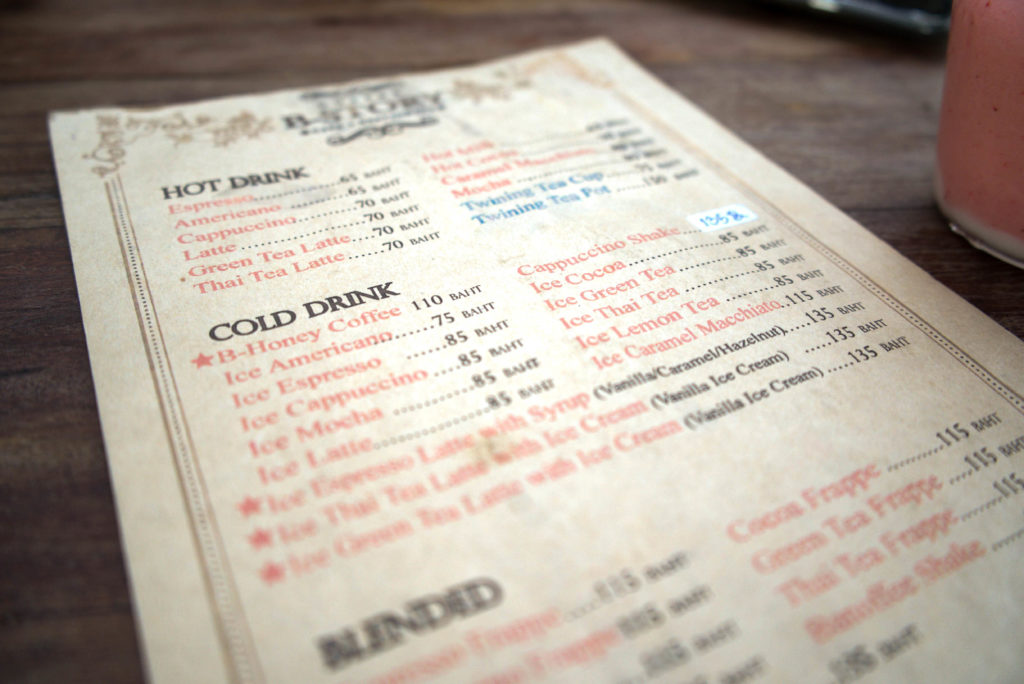 B-STORY
HOT DRINK
Espresso..................65 BAHT
Americano ..............65 BAHT
Cappuccino............70 BAHT
Latte ......................70 BAHT
Green Tea Latte....70 BAHT
Thai Tea Latte......70 BAHT
Hot
Hot
Caramel Macchiato
Mocha
Twining Tea Cup
Twining Tea Pot ......150 BAHT
COLD DRINK
★B-Honey Coffee 110 BAHT
Ice Americano........75 BAHT
Ice Espresso ......85 BAHT
Ice Cappuccino ....85 BAHT
Ice Mocha ............85 BAHT
Ice Latte..................85 BAHT
Cappuccino Shake.. 135 ฿
Ice Cocoa ................85 BAHT
Ice Green Tea ..........85 BAHT
Ice Thai Tea ............85 BAHT
Ice Lemon Tea ........85 BAHT
Ice Caramel Macchiato..115 BAHT
★Ice Espresso Latte with Syrup (Vanilla/Caramel/Hazelnut).....135 BAHT
★Ice Thai Tea Latte with Ice Cream (Vanilla Ice Cream) .....135 BAHT
★Ice Green Tea Latte with Ice Cream (Vanilla Ice Cream) ......135 BAHT
BLENDED
Frappe.....115 BAHT
Frappe 115 BAHT
115 BAHT
Cocoa Frappe ...........115 BAHT
Green Tea Frappe ....115 BAHT
Thai Tea Frappe........115
Banoffee Shake
135 BAHT